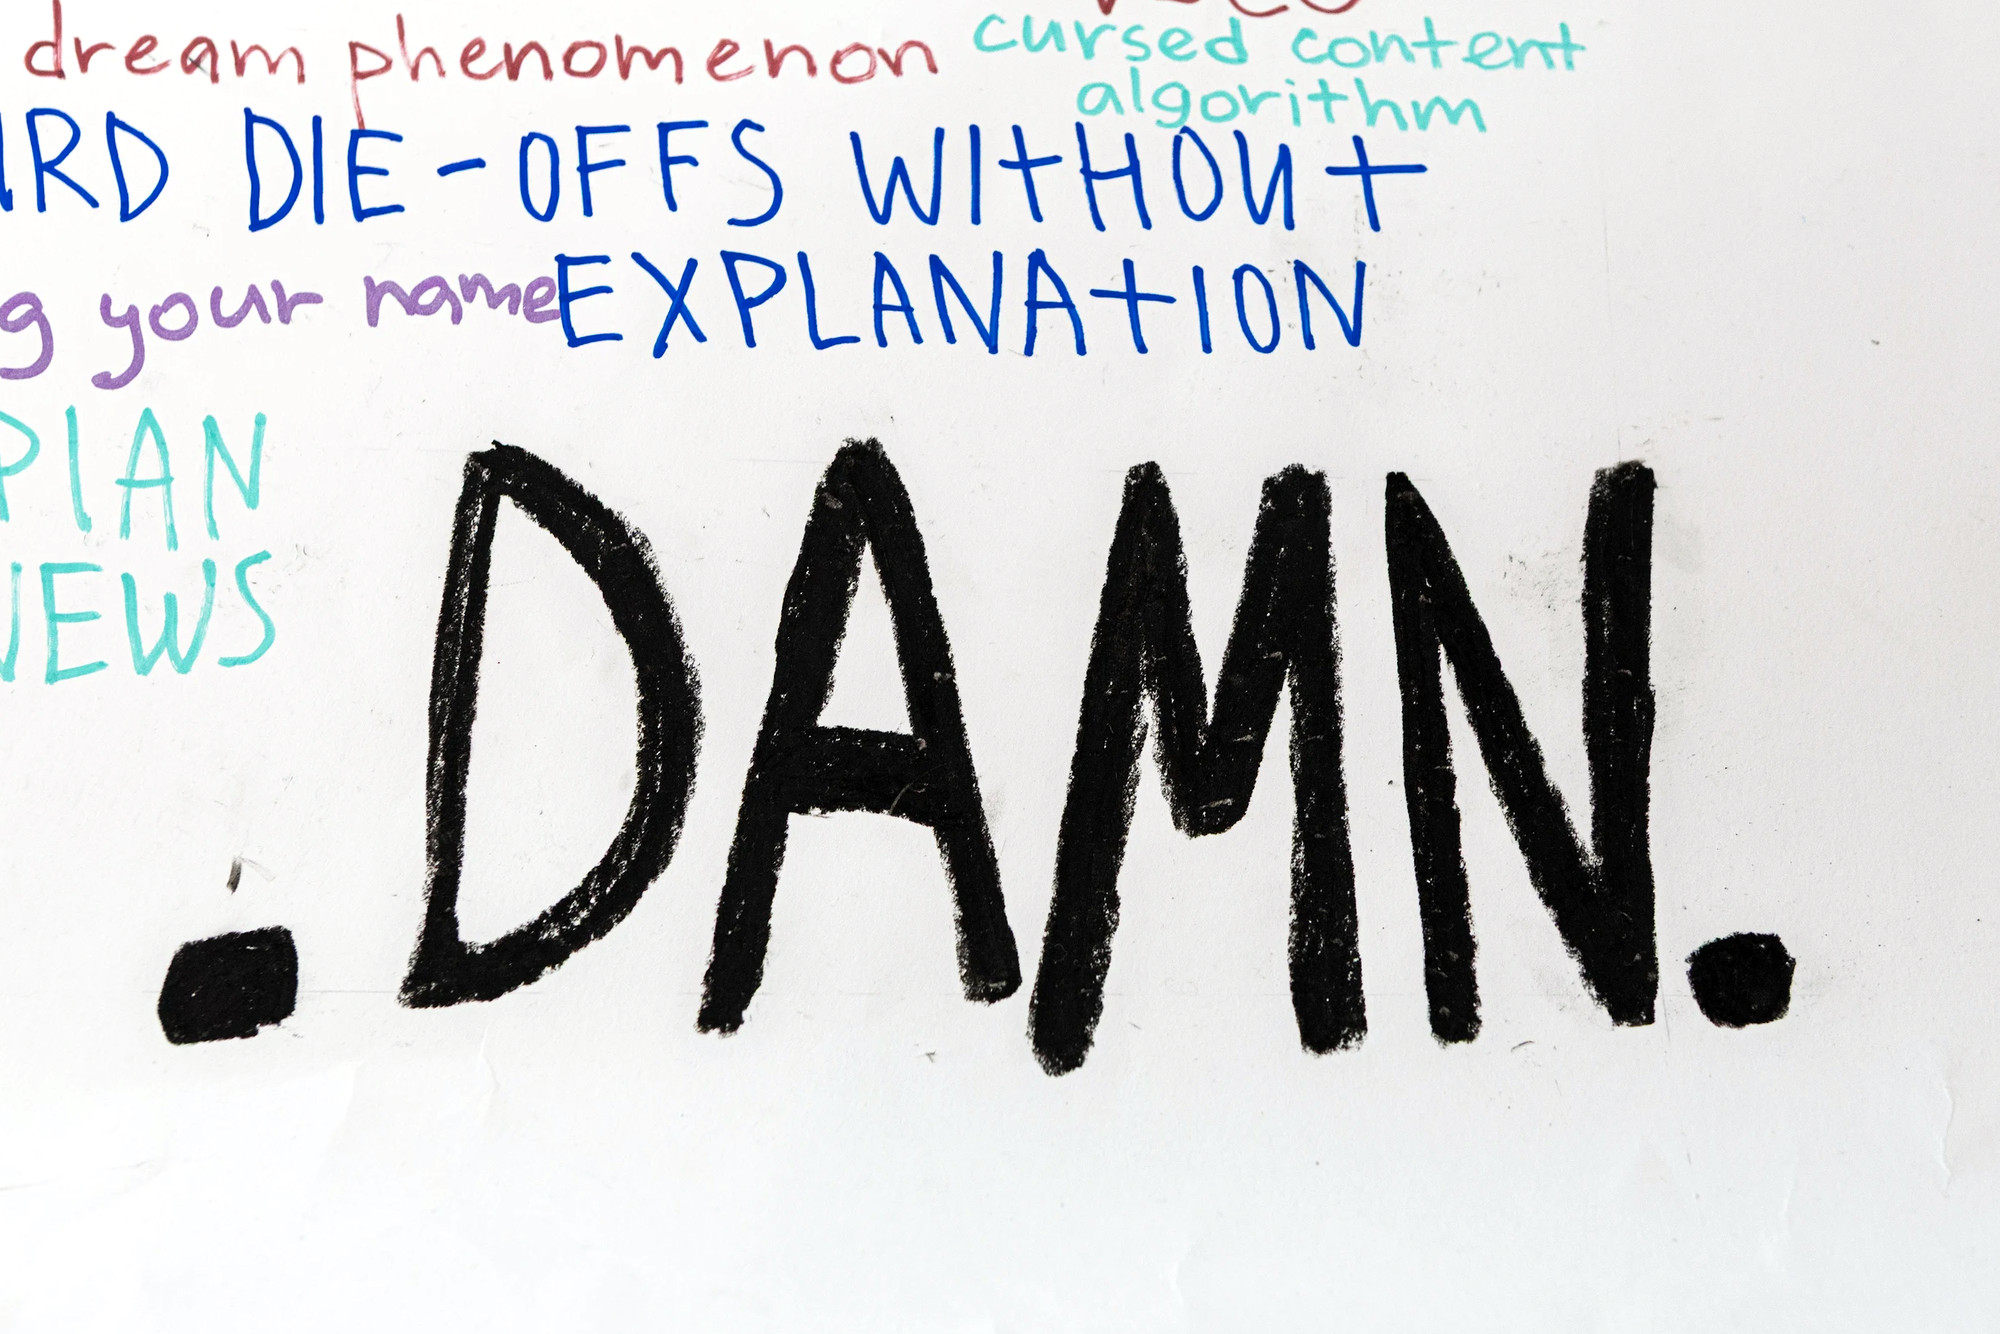 dream phenomenon
cursed content
algorithm
DIE-OFFS WITHOUT
EXPLANATION
your name
NEWS
.DAMN.